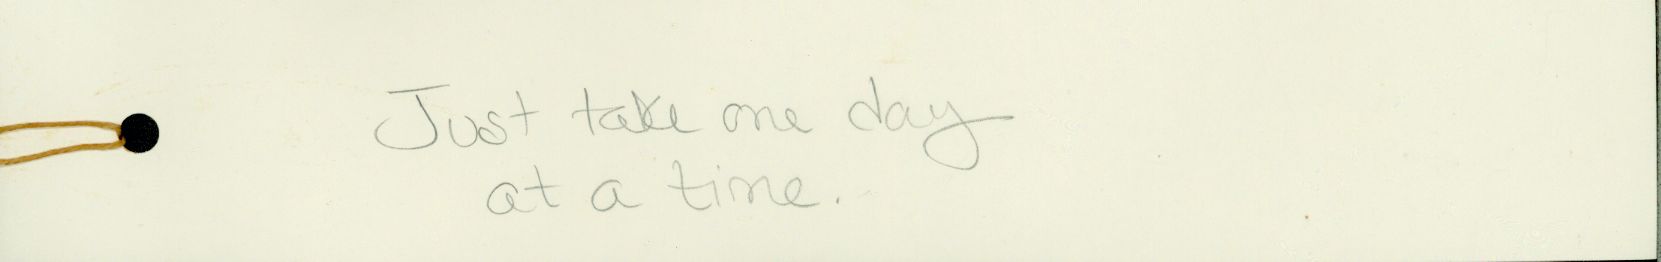 Just take one day
at a time.